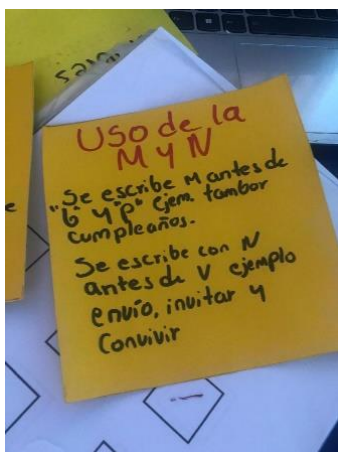 Uso de la
M y N
"Se escribe M antes de
"b" y "p" ejem. tambor
cumpleaños.
Se escribe con N
antes de V ejemplo
envío, invitar y
Convivir